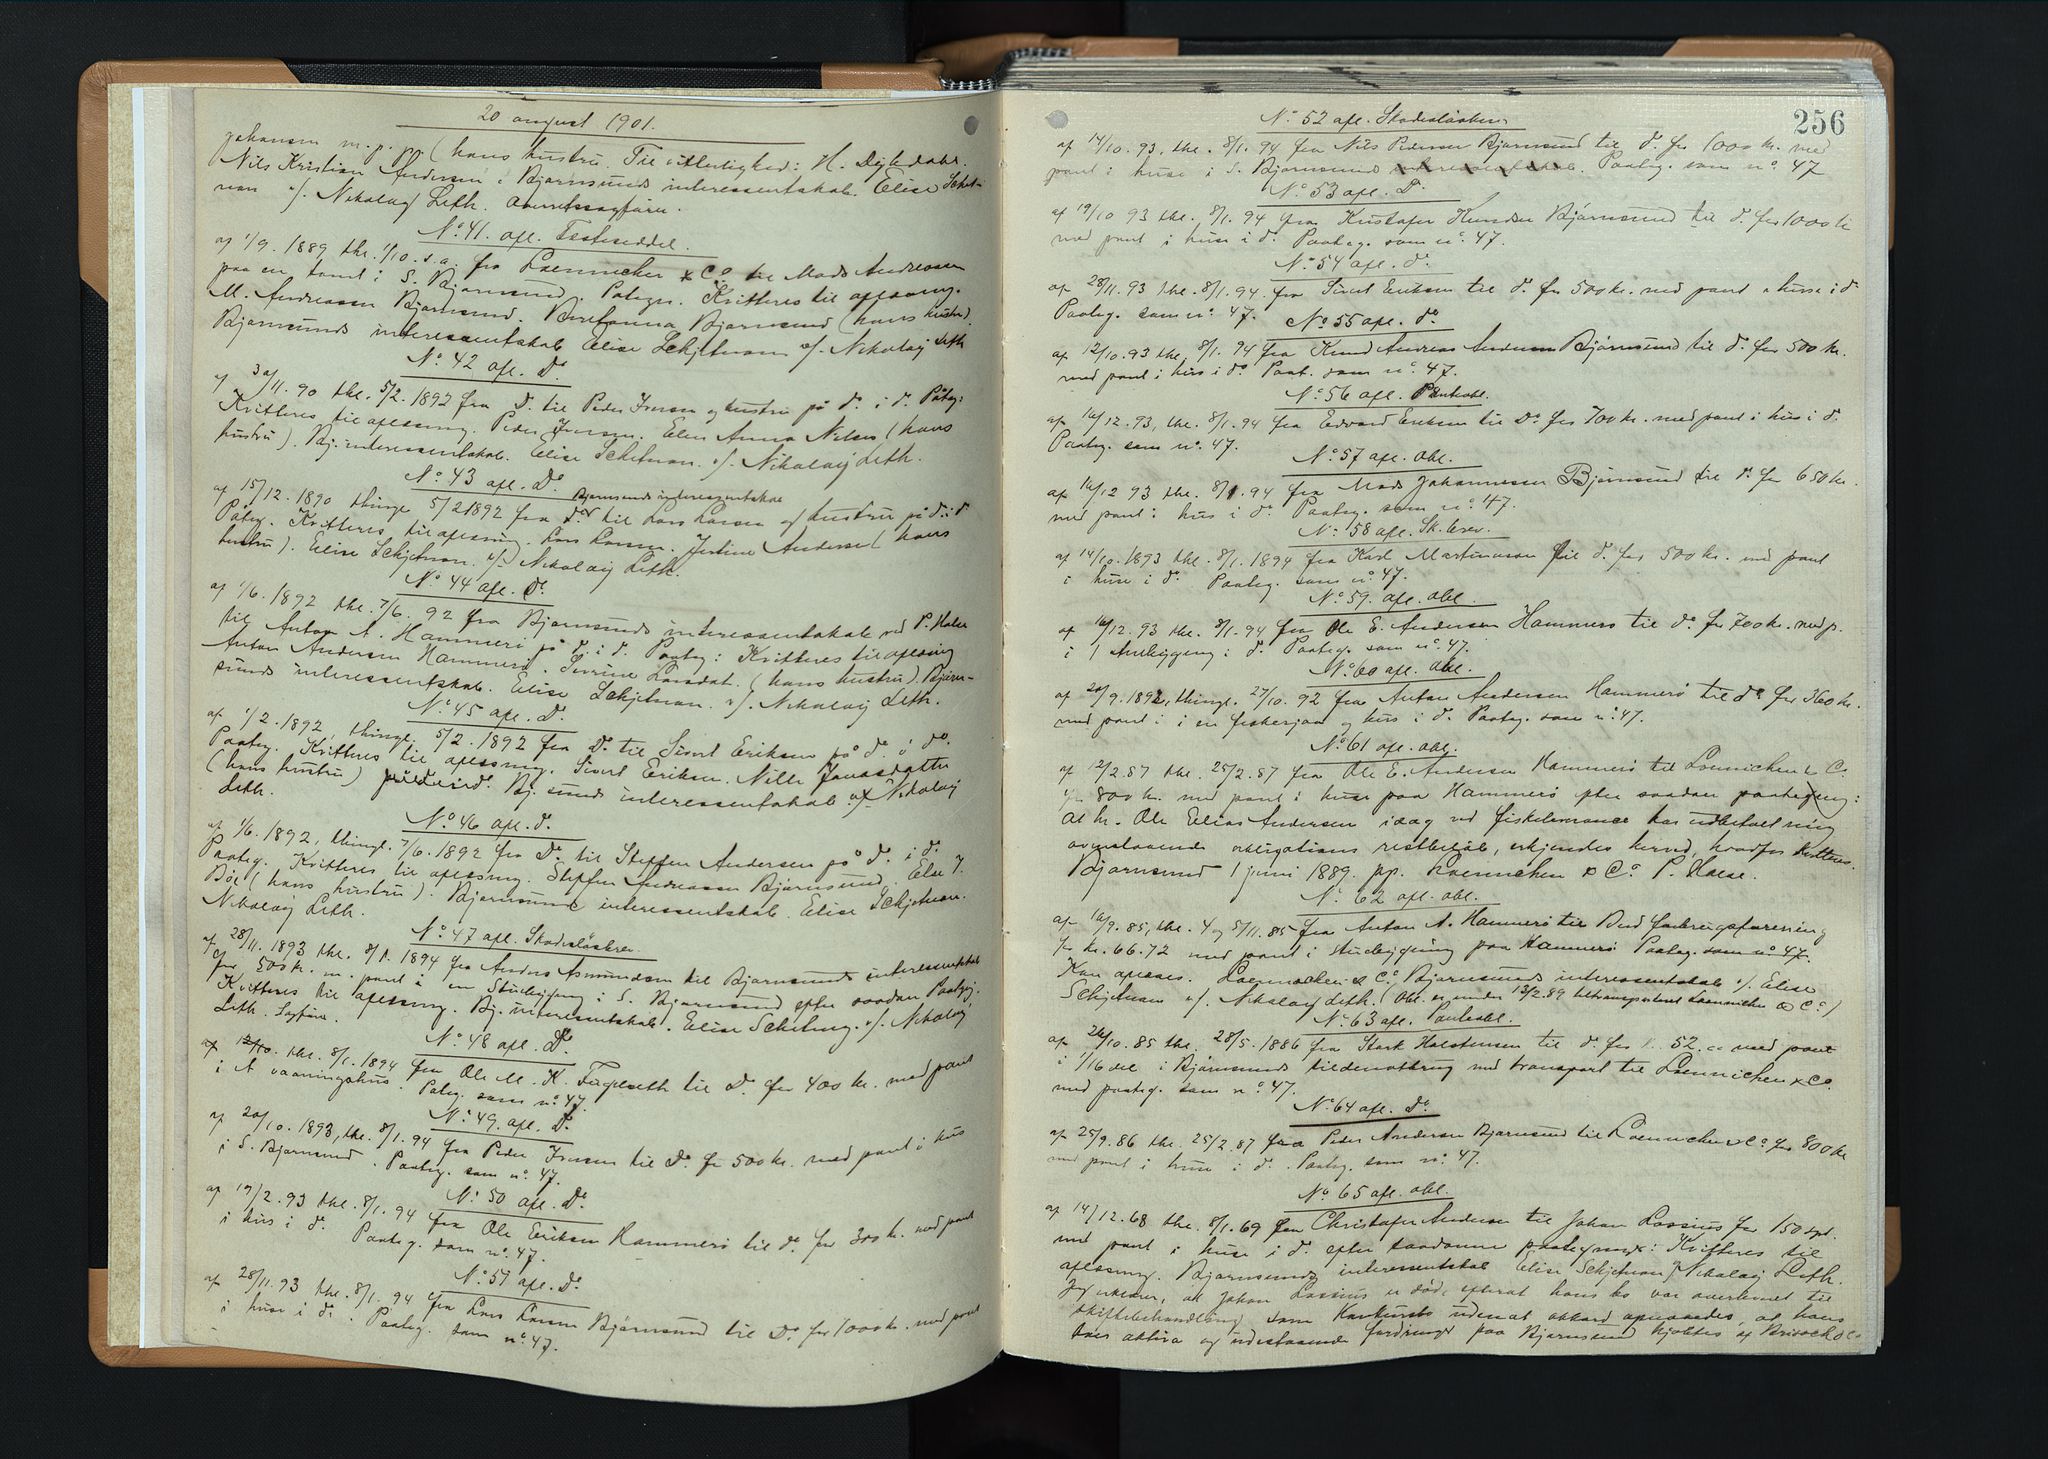 20 august 1901.
Johansen m.p. (hans hustru. Til vitterlighed: H.
Nils Kristian Andersen. Bjørnsunds interessentskab. Elise Schet-
nan e/. Nikolaij Leth. Overretssagfører.
No 41. afl. Festeseddel.
af 1/9. 1889 thl. 1/10. s.a. fra Loennechen & Co til Mads Andreassen
paa en tomt i S. Bjørnsund. Påtegn. Kvitteres til aflæsning.
M. Andreassen Bjørnsund. Bjørnsund (hans hustru).
Bjørnsunds interessentskab Elise Schjetnan e/. Nikolaij Leth
No 42 afl. Do
af 30/11. 90 thl. 5/2. 1892 fra Do. til Peder Iversen og hustru på do. i do. Påteg:
Kvitteres til aflæsning. Peder Iversen. Elen Anna Nilsen (hans
hustru). Bj. interessentskab. Elise Schetnan. e/. Nikolaij Leth.
No 43 afl. Do
Bjørnsunds interessentskab
af 15/12. 1890 thingl. 5/2 1892 fra do. til Lars Larsen og hustru på do. i do
Påteg. Kvitteres til aflæsning. Lars Larsen. Andersen (hans
hustru). Elise Schjetnan. e/. Nikolaij Leth.
No 44 afl. Do.
af 1/6. 1892 thl. 7/6. 92 fra Bjørnsunds interessentskab ved P. Holse
til Anton A. Hammerø på do. i do. Paateg: Kvitteres til aflæsning
Anton Andersen Hammerø. Larsdat. (hans hustru). Bjørn-
sunds interessentskab. Elise Schjetnan. e/. Nikolaij Leth.
No 45 afl. Do.
af 1/2. 1892, thingl. 5/2. 1892 fra Do. til Sivert Eriksen på do. i do.
Paateg. Kvitteres til aflæsning. Sivert Eriksen. Nille Jonasdatter
(hans hustru) Bj.sunds interessentskab e/ Nikolaij
Leth.
No 46 afl. do.
af 1/6. 1892, thingl. 7/6. 1892 fra Do. til Steffen Andersen på do. i do.
Paateg. Kvitteres til aflæsning. Steffen Andreassen Bjørnsund. Else J.
Bøe (hans hustru). Bjørnsund interessentskab. Elise Schjetnan.
Nikolaij Leth.
No 47 afl. Skadesløsbrev
af 28/11. 1893 thl. 8/1. 1894 fra Anders Asmundsen til Bjørnsunds interessentskab
for 500 kr. m. pant i en Stuebygning i S. Bjørnsund efter saadan Paateg:
Kvitteres til aflæsning. Bj. interessentskab. Elise Schetnan. e/. Nikolaij
Leth. Sagfører.
No 48 afl. Do.
af 12/10. thl. 8/1. 1894 fra Ole M. K. til Do. for 400 kr. med pant
i A vaaningshus. Påteg. som no. 47.
No 49. afl. Do.
af 20/10. 1893, thl. 8/1. 94 fra Peder Iversen til Do. for 500 kr. med pant i hus
i S. Bjørnsund. Paateg. som no. 47.
No 50 afl. Do.
af 19/2. 93 thl. 8/1. 94 fra Ole Eriksen Hammerø til do. for 300 kr. med pant
i hus i do. Paateg. som no. 47.
No. 51 afl. Do.
af 28/11. 93 thl. 8/1. 94 fra Lars Larsen Bjørnsund til Do. for 1000 kr. med pant
i huse i do. Paateg. som no. 47.
256
No 52 afl. Skadesløsbrev
af 14/10. 93, thl. 8/1. 94 fra Nils Pedersen Bjørnsund til do. for 1000 kr. med
pant i huse i S. Bjørnsund interessentskab. Paateg. som no. 47
No 53 afl. Do.
af 19/10 93 thl. 8/1. 94 fra Kristofer Knudsen Bjørnsund til do. for 1000 kr
med pant i huse i do. Paateg. som no. 47.
No 54 afl. do.
af 28/11. 93 thl. 8/1. 94. fra Sivert Eriksen til do. for 500 kr. med pant i huse i do
Paateg. som no. 47.
No 55 afl. do.
af 12/10. 93 thl. 8/1. 94 fra Knud Andreas Andersen Bjørnsund til do. for 500 kr.
med pant i hus i do. Paat. som no. 47.
No 56 afl. Panteobl.
af 16/12. 93, thl. 8/1. 94 fra Edvard Eriksen til Do. for 700 kr. med pant i hus i do.
Paateg. som no. 47.
No. 57 afl. obl.
af 16/12 93 thl. 8/1. 94 fra Mads Johannessen Bjørnsund til do. for 650 kr.
med pant i hus i do. Paateg. som no. 47.
No. 58 afl. Sk.brev.
af 14/10. 1893 thl. 8/1. 1894 fra Karl Martinussen til do. for 500 kr. med pant
i huse i do. Paateg. som no. 47.
No. 59. afl. obl.
af 16/12. 93 thl. 8/1. 94 fra Ole E. Andersen Hammerø til do. for 700 kr. med p.
i 1 Stuebygning i do. Paateg. som no. 47.
No. 60 afl. obl.
af 20/9. 1892, thingl. 27/10. 92 fra Anton Andersen Hammerø til do. for 360 kr.
med pant i en fiskersjaa og hus i do. Paateg. som no. 47.
No. 61 afl. obl.
af 12/2. 87 thl. 25/2. 87 fra Ole E. Andersen Hammerø til Loennichen & Co.
for 800 kr. med pant i huse paa Hammerø efter saadan paategning:
At hr. Ole Elias Andersen idag ved fiskeleverance har udbetalt mig
ovenstaaende obligations restbeløb, erkjendes herved, hvorfor kvitteres.
Bjørnsund 1 juni 1889. pp. Loennechen & Co P. Holse.
No. 62 afl. obl.
af 16/9. 85, thl. 4 og 5/11. 85 fra Anton A. Hammerø til Bud forbrugsforening
for kr. 66.72 med pant i stuebygning paa Hammerø Paateg. som no. 47.
Kan aflæses. Loennechen & Co. Bjørnsunds interessentskab e/. Elise
Schjetnan e/. Nikolaij Leth. (Obl. er under 13/2. 89 transporteret Loennichen & Co.)
No. 63 afl. Panteobl.
af 26/10. 85 thl. 28/5. 1886 fra Halstensen til do. for kr. 52.00 med pant
i 1/16 del i Bjørnsunds med transport til Loennichen & Co.
med paateg. som no. 47.
No. 64 afl. Do.
af 25/9. 86 thl. 25/2. 87 fra Peder Andersen Bjørnsund til Loennichen & Co for 800 kr
med pant i huse i do. Paateg. som no. 47.
No. 65 afl. obl.
af 14/12. 68 thl. 8/1. 69 fra Christofer Andersen til Johan Lossius for 150 spd.
med pant i huse i do. efter saadanne paategninger: Kvitteres til
aflæsning. Bjørnsunds interessentskab Elise Schjetnan e/ Nikolaij Leth.
Jeg erklærer, at Johan Lossius er død, efterat hans bo var overleveret til
skiftebehandling som Konkursbo udenat akkord opnaaedes, at hans
boes aktiva og udestaaende fordringer paa Bjørnsund kjøbtes af & Co